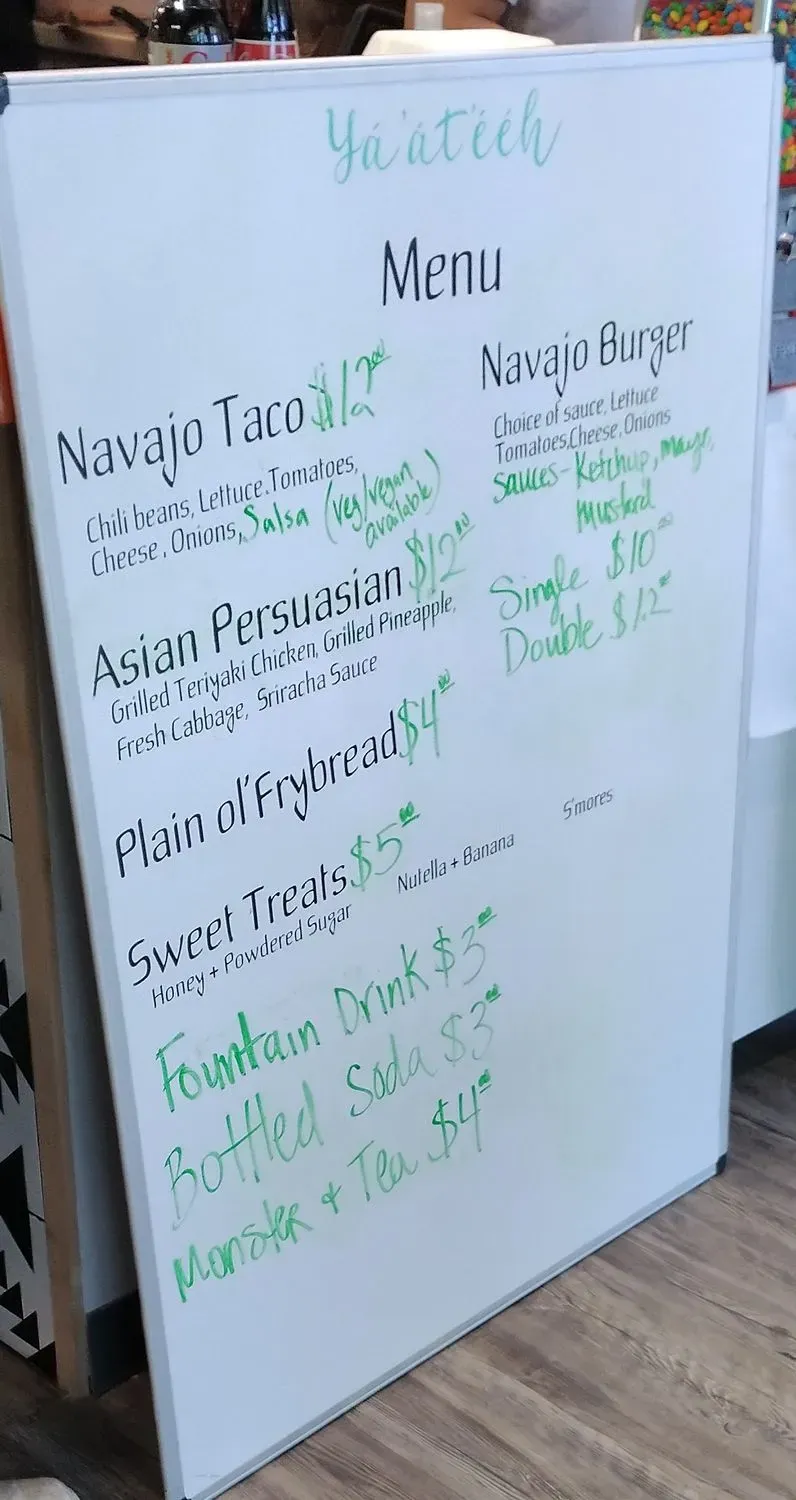 Yá'át'ééh
Menu
Navajo Taco $12.00
Chili beans, Lettuce.Tomatoes,
Cheese, Onions, Salsa (veg/vegan
available)
Asian Persuasian $12.00
Grilled Teriyaki Chicken, Grilled Pineapple,
Fresh Cabbage, Sriracha Sauce
Plain ol' Frybread $4.00
Sweet Treats $5.00
Honey + Powdered Sugar
Nutella + Banana
S'mores
Navajo Burger
Choice of sauce, Lettuce
Tomatoes,Cheese, Onions
Sauces - Ketchup, mayo,
mustard
Single $10.00
Double $12.00
Fountain Drink $3.00
Bottled Soda $3.00
Monster + Tea $4.00